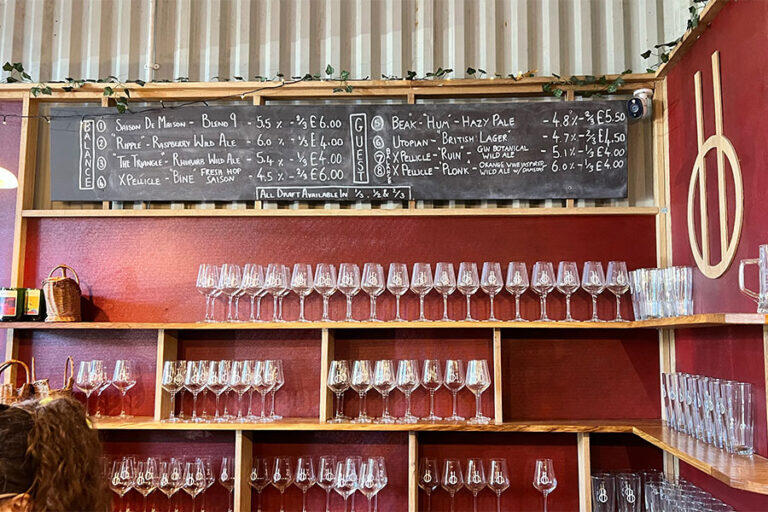 BALANCE
① SAISON DE MAISON - BLEND 9 - 5.5% - ⅔ £6.00
② "RIPPLE" - RASPBERRY WILD ALE - 6.0% - ⅓ £4.00
③ "THE TRIANGLE - RHUBARB WILD ALE - 5.4% - ⅓ £4.00
④ XPELLICLE - "BINE" FRESH HOP SAISON - 4.5% - ⅔ £6.00
GUEST
⑤ BEAK - "HUM" - HAZY PALE - 4.8% - ⅔ £5.50
⑥ UTOPIAN - "BRITISH LAGER" - 4.7% - ⅔ £4.50
⑦ XPELLICLE - "RUIN" - GIN BOTANICAL WILD ALE - 5.1% - ⅓ £4.00
⑧ XPELLICLE - PLONK - ORANGE WINE INSPIRED WILD ALE - 6.0% - ⅓ £4.00
ALL DRAFT AVAILABLE IN ⅓, ½ & ⅔